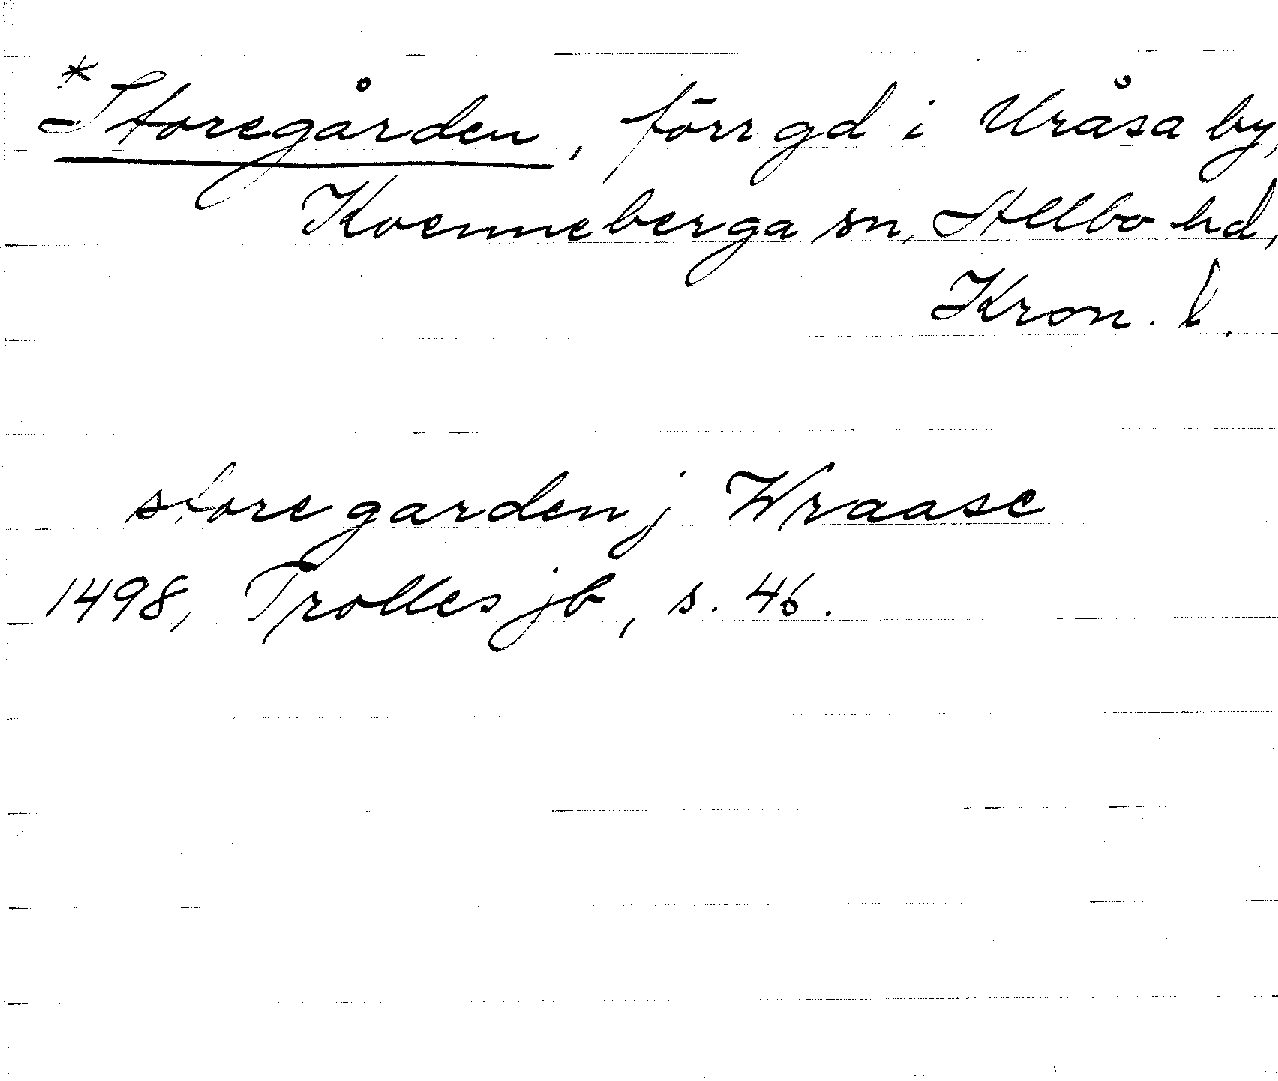 *Storegården, förr gd i Uråsa by,
Kvenneberga sn, Allbo hd,
Kron. l.
store garden j Wraase
1498, Trolles jb, s. 46.